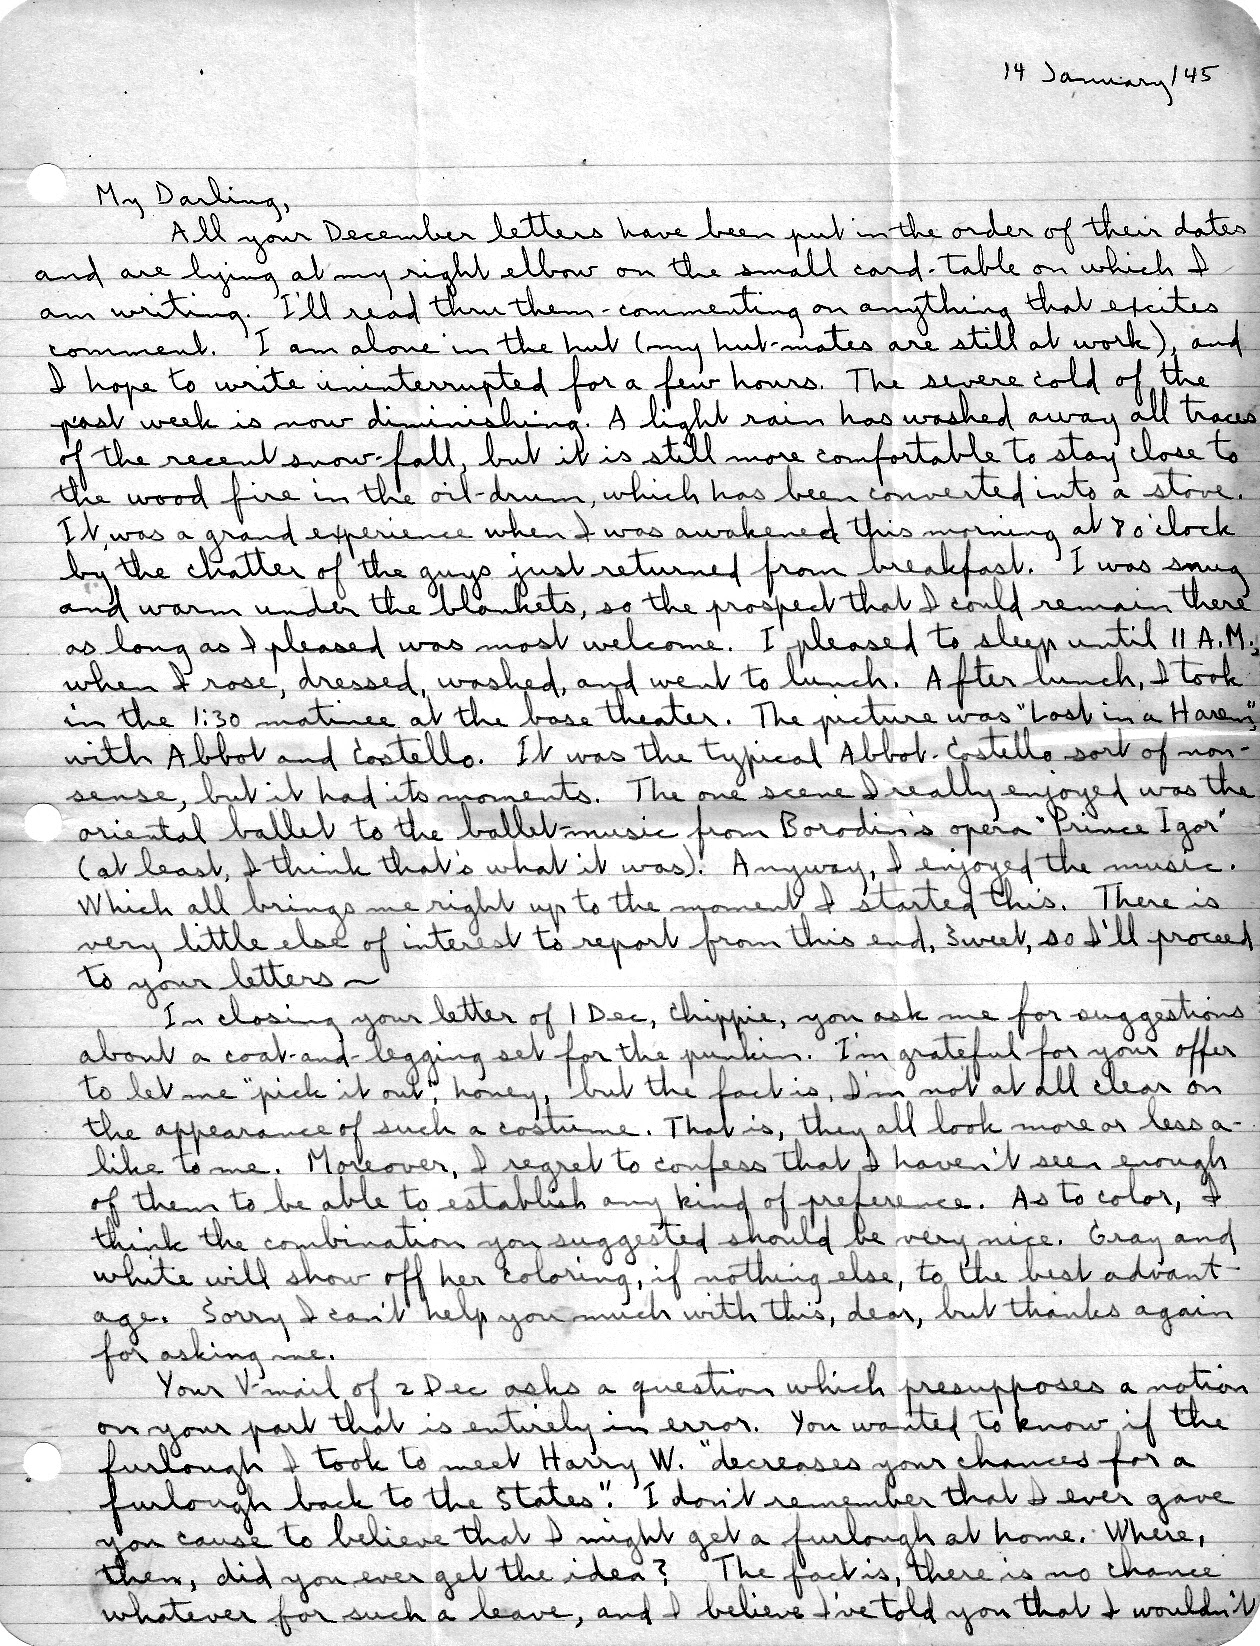 14 January/45
My Darling,
All your December letters have been put in the order of their dates
and are lying at my right elbow on the small card-table on which I
am writing. I'll read thru them - commenting on anything that excites
comment. I am alone in the hut (my hut-mates are still at work), and
I hope to write uninterrupted for a few hours. The severe cold of the
past week is now diminishing. A light rain has washed away all traces
of the recent snow-fall, but it is still more comfortable to stay close to
the wood fire in the oil-drum, which has been converted into a stove.
It was a grand experience when I was awakened this morning at 8 o'clock
by the chatter of the guys just returned from breakfast. I was snug
and warm under the blankets, so the prospect that I could remain there
as long as I pleased was most welcome. I pleased to sleep until 11 A.M.,
when I rose, dressed, washed, and went to lunch. After lunch, I took
in the 1:30 matinee at the base theater. The picture was "Lost in a Harem",
with Abbot and Costello. It was the typical Abbot-Costello sort of non-
sense, but it had its moments. The one scene I really enjoyed was the
oriental ballet to the ballet-music from Borodin's opera "Prince Igor"
(at least, I think that's what it was). Anyway, I enjoyed the music.
Which all brings me right up to the moment I started this. There is
very little else of interest to report from this end, Sweet, so I'll proceed
to your letters ~
In closing your letter of 1 Dec, Chippie, you ask me for suggestions
about a coat-and-legging set for the punkin. I'm grateful for your offer
to let me "pick it out", honey, but the fact is, I'm not at all clear on
the appearance of such a costume. That is, they all look more or less a-
like to me. Moreover, I regret to confess that I haven't seen enough
of them to be able to establish any kind of preference. As to color, I
think the combination you suggested should be very nice. Gray and
white will show off her coloring, if nothing else, to the best advant-
age. Sorry I can't help you much with this, dear, but thanks again
for asking me.
Your V-mail of 2 Dec asks a question which presupposes a notion
on your part that is entirely in error. You wanted to know if the
furlough I took to meet Harry W. "decreases your chances for a
furlough back to the States". I don't remember that I ever gave
you cause to believe that I might get a furlough at home. Where,
then, did you ever get the idea? The fact is, there is no chance
whatever for such a leave, and I believe I've told you that I wouldn't